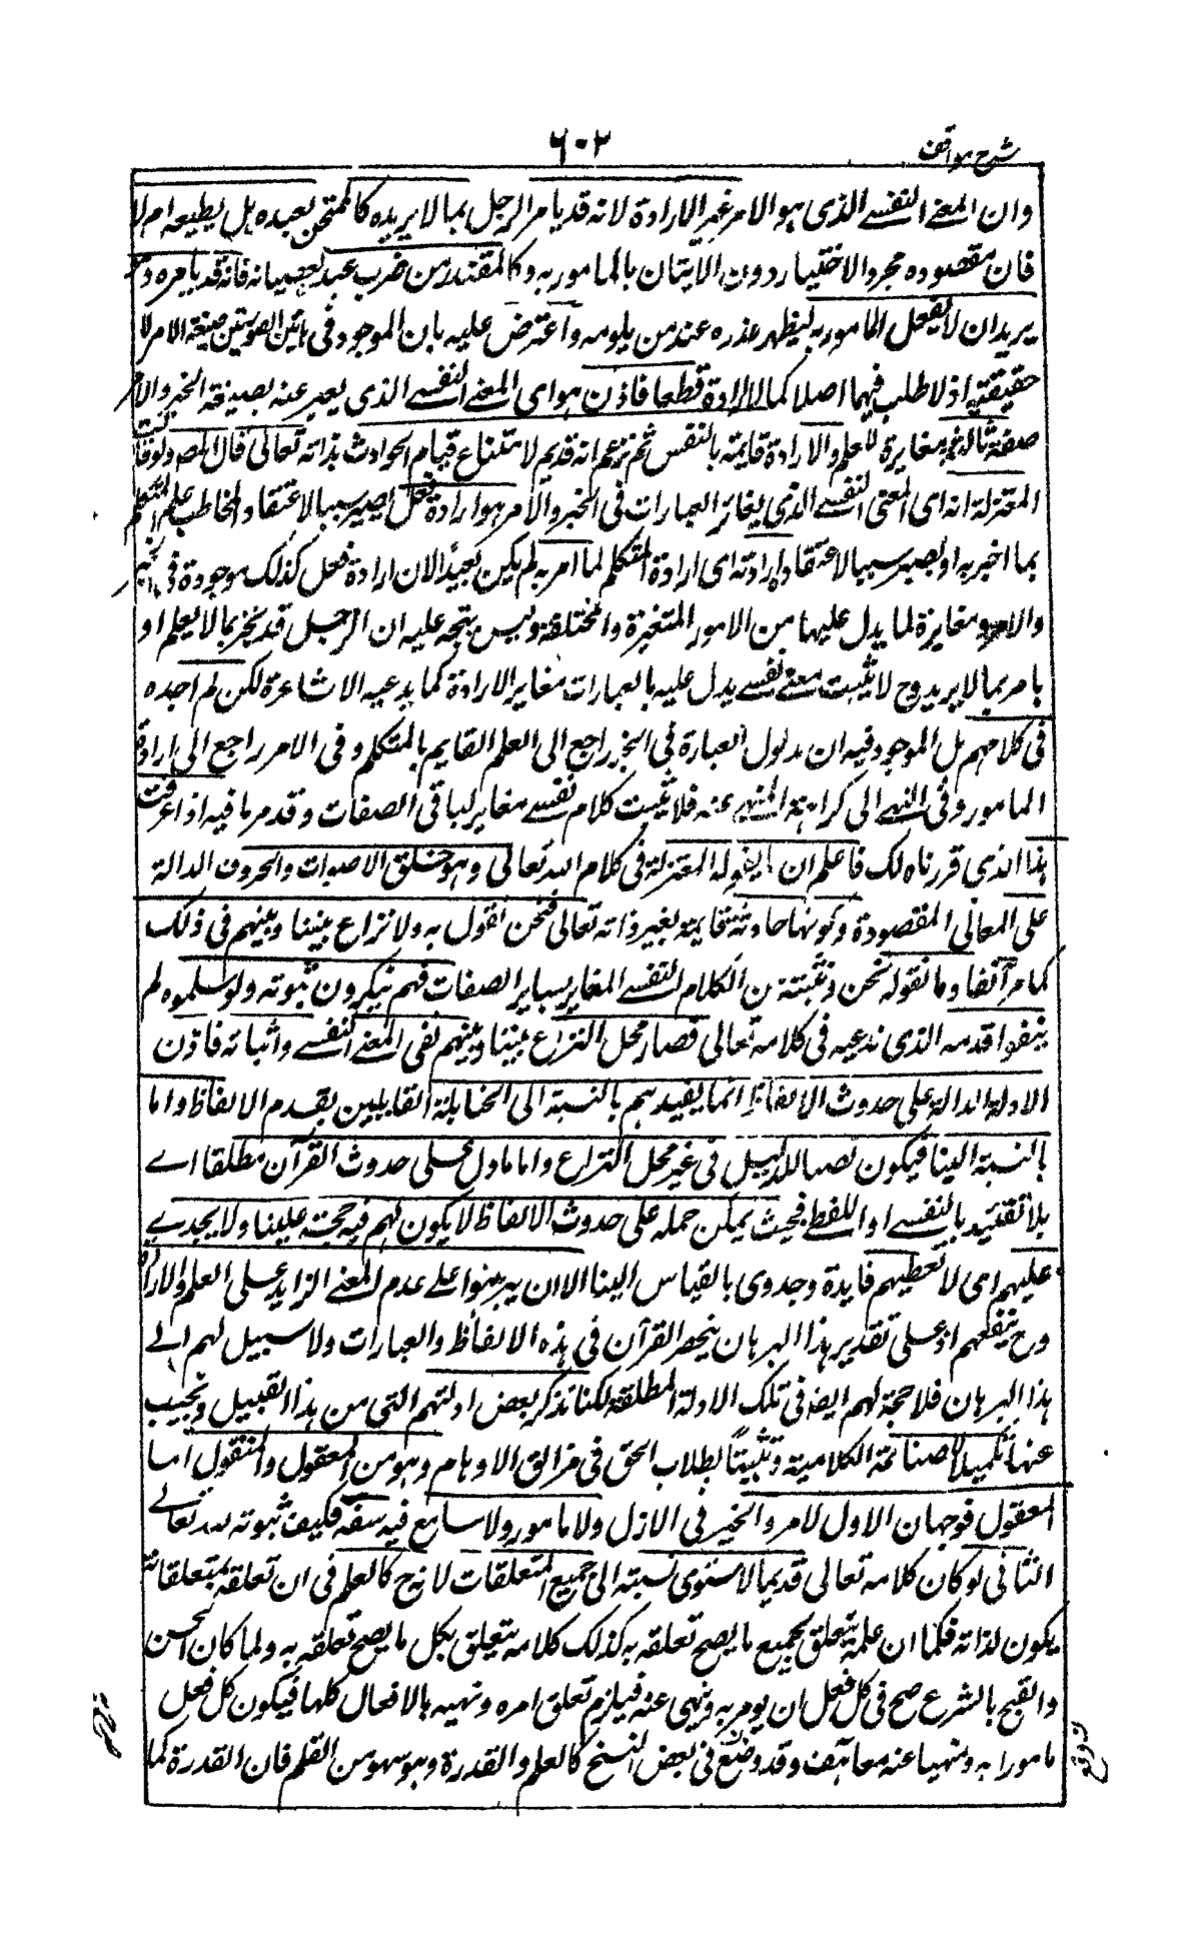 شرح مواقف
٦٠٢
وان المعنے النفسے الذی ہو الامر غیر الارادة لانہ قد یامر الرجل بما لا یریدہ کالممتحن بعبدہ ہل یطیعہ ام لا
فان مقصودہ مجرد الاختبار دون الایتان بالمامور بہ وکالمقتدر من ضرب عبدہ بعصیانہ فانہ قد یامرہ وہو
یرید ان لا یفعل المامور بہ لیظہر عذرہ عند من یلومہ واعترض علیہ بان الموجود فی ہاتین الصورتین صیغة الامر لا
حقیقتہ اذ لا طلب فیہما اصلا کما لا ارادة قطعا فاذن ہو ای المعنے النفسے الذی یعبر عنہ بصیغة الخبر والامر
صفة ثالثة مغایرة للعلم والارادة قایمة بالنفس ثم نزعم انہ قدیم لامتناع قیام الحوادث بذاتہ تعالی قال المصہ ولو قالت
المعتزلة انہ ای المعنی النفسے الذی یغایر العبارات فی الخبر والامر ہو ارادة فعل یصیر سببا لاعتقاد المخاطب علم المتکلم
بما اخبر بہ او یصیر سببا لاعتقادہ ارادتہ ای ارادة المتکلم لما امر بہ لم یکن بعیدا لان ارادة فعل کذلک موجودة فی الخبر
والامر ومغایرة لما یدل علیہا من الامور المتغیرة والمختلفة ولیس یتجہ علیہ ان الرجل قد یخبر بما لا یعلم او
یامر بما لا یرید وح لا یثبت معنے نفسے یدل علیہ بالعبارات مغایر الارادة کما یدعیہ الاشاعرة لکن لم اجدہ
فی کلامہم بل الموجود فیہ ان مدلول العبارة فی الخبر راجع الی العلم القایم بالمتکلم وفی الامر راجع الی ارادة
المامور وفی النہے الی کراہتہ المنہے عنہ فلا یثبت کلام نفسے مغایر لباقی الصفات وقد مر ما فیہ اذا عرفت
ہذا الذی قررناہ لک فاعلم ان ما یقولہ المعتزلة فی کلام اللہ تعالی وہو خلق الاصوات والحروف الدالة
علی المعانی المقصودة وکونہا حادثة قایمة بغیر ذاتہ تعالی فنحن نقول بہ ولا نزاع بیننا وبینہم فی ذلک
کما مر آنفا وما نقولہ نحن ونثبتہ من الکلام النفسے المغایر لسایر الصفات فہم ینکرون ثبوتہ ولو سلموہ لم
ینفوا قدمہ الذی ندعیہ فی کلامہ تعالی فصار محل النزاع بیننا وبینہم نفی المعنے النفسے واثباتہ فاذن
الادلة الدالة علی حدوث الالفاظ انما یفیدہم بالنسبة الی الحنابلة القایلین بقدم الالفاظ واما
بالنسبة الینا فیکون نصبا للدلیل فی غیر محل النزاع واما ما دل علی حدوث القرآن مطلقا اے
بلا تقیید بالنفسے او اللفظ فحیث یمکن حملہ علی حدوث الالفاظ لا یکون لہم فیہ حجة علینا ولا یجدے
علیہم ای لا تعطیہم فایدة وجدوی بالقیاس الینا الا ان یبرہنوا علے عدم المعنے الزاید علی العلم والارادة
وح ینفعہم اذ علی تقدیر ہذا البرہان ینحصر القرآن فی ہذہ الالفاظ والعبارات ولا سبیل لہم الے
ہذا البرہان فلا حجة لہم ایضہ فی تلک الادلة المطلقة لکنا نذکر بعض ادلتہم التی من ہذا القبیل ونجیب
عنہا تکمیلا للصناعة الکلامیة وتثبیتاً لطلاب الحق فی مزالق الاوہام وہو من المعقول والمنقول اما
المعقول فوجہان الاول الامر والخبر فی الازل ولا مامور ولا سامع فیہ سفہ فکیف ثبوتہ للہ تعالے
الثانی لو کان کلامہ تعالی قدیما لاستوی نسبتہ الی جمیع المتعلقات لانہ ح کالعلم فی ان تعلقہ بمتعلقاتہ
یکون لذاتہ فکما ان علمہ یتعلق بجمیع ما یصح تعلقہ بہ کذلک کلامہ یتعلق بکل ما یصح تعلقہ بہ ولما کان الحسن
والقبح بالشرع صح فی کل فعل ان یومر بہ وینہی عنہ فیلزم تعلق امرہ ونہیہ بالافعال کلہا فیکون کل فعل
مامورا بہ ومنہیا عنہ معا ہف وقد وقع فی بعض النسخ کالعلم والقدرة وہو سہو من القلم فان القدرة کما